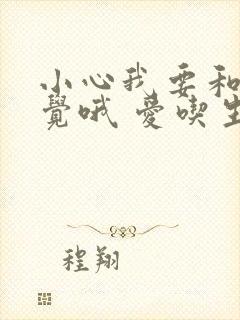 小心我要和
覺哦 愛喫生
程翔